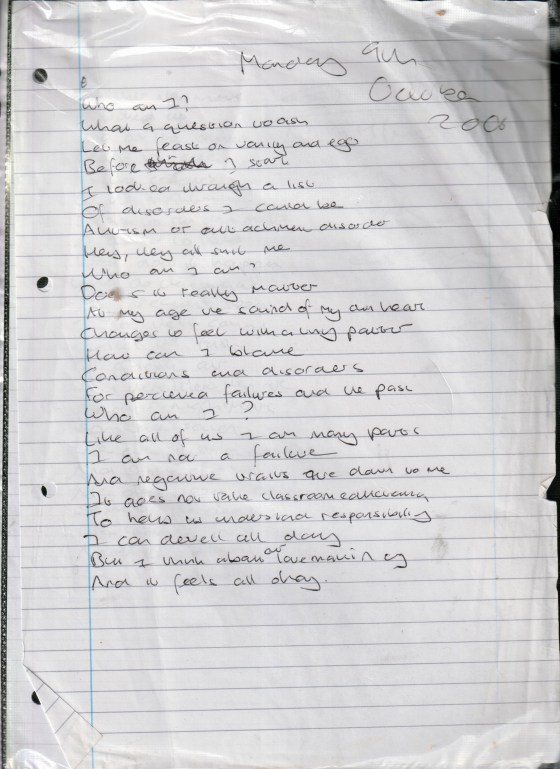 Monday 9th
October
2006
Who am I?
What a question to ask
Let me feast on vanity and ego
Before I start
I looked through a list
Of disorders I could be
Autism or attachment disorder
Hey, they all suit me
Who am I am?
Does it really matter
At my age the sound of my own heart
Changes to feel with a tiny patter
How can I blame
Conditions and disorders
For perceived failures and the past
Who am I?
Like all of us I am many parts
I am not a failure
And negative traits are down to me
It does not take classroom educating
To help us understand responsibility
I can dwell all day
But I think about our lovemaking
And it feels all okay.